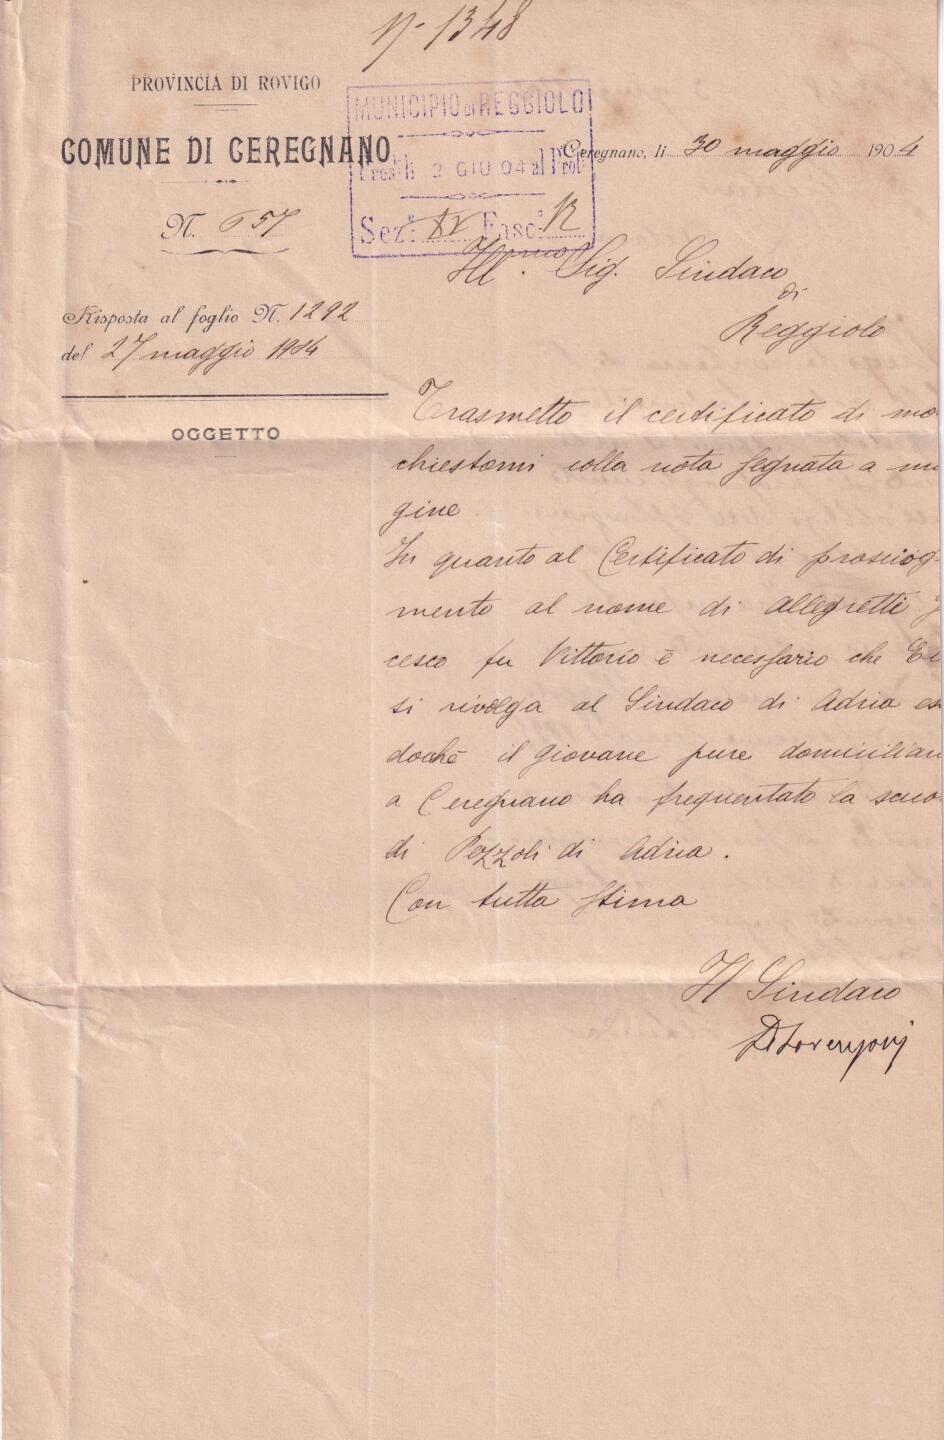 N. 1348
PROVINCIA DI ROVIGO
COMUNE DI CEREGNANO
N. 657
MUNICIPIO DI REGGIOLO
Pres. li 2 GIU 04 al Prot.
Sez. Fasc.
Ceregnano, li 30 maggio 1904
Ill. Sig. Sindaco
di
Reggiolo
Risposta al foglio N. 1292
del 27 maggio 1904
OGGETTO
Trasmetto il certificato di mo
chiestomi colla nota segnata a
gine
In quanto al Certificato di prosciog
mento al nome di Allegretti
cesco fu Vittorio è necessario che
si rivolga al Sindaco di Adria
dochè il giovane pure domicilian
a Ceregnano ha frequentato la scuo
di Pezzoli di Adria.
Con tutta stima
Il Sindaco